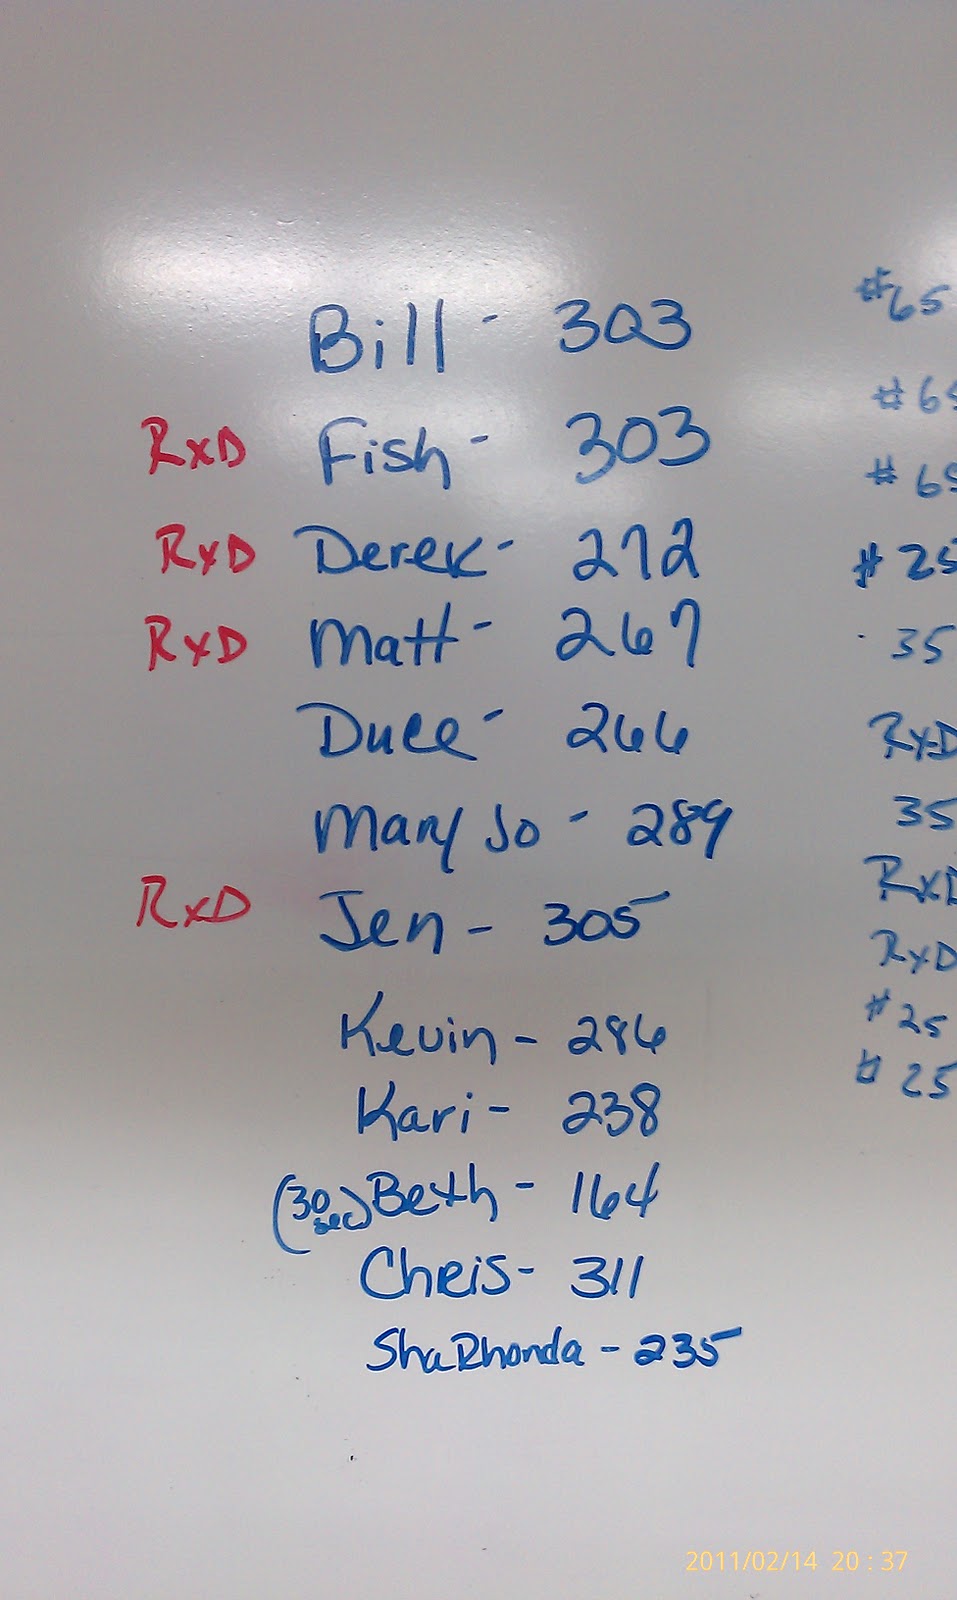 Bill - 303
RxD Fish - 303
RxD Derek - 272
RxD Matt - 267
Duce - 266
Mary Jo - 289
RxD Jen - 305
Kevin - 286
Kari - 238
(30 sec) Beth - 164
Chris - 311
ShaRhonda - 235
#65
#65
#65
#25
35
RxD
35
RxD
RxD
#25
#25
2011/02/14 20:37